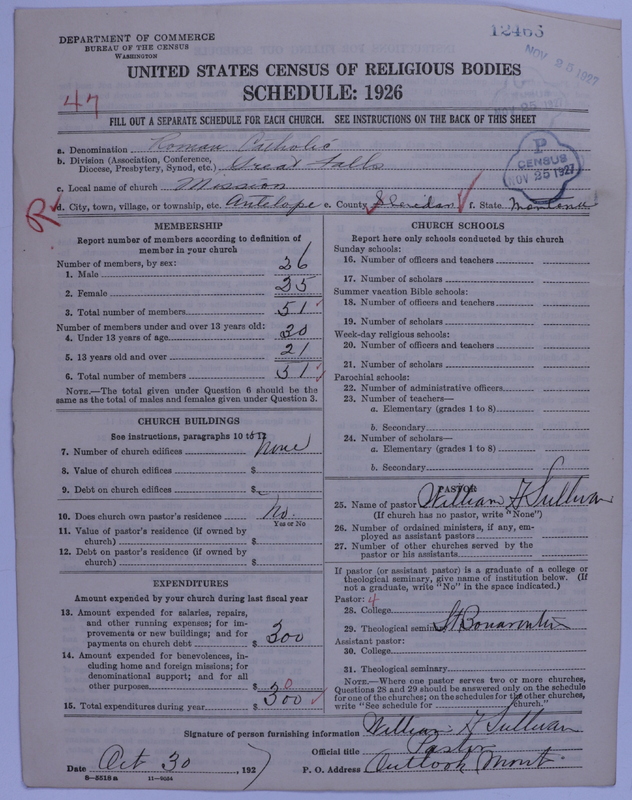 DEPARTMENT OF COMMERCE
BUREAU OF THE CENSUS
WASHINGTON
12465
NOV 25 1927
UNITED STATES CENSUS OF RELIGIOUS BODIES
SCHEDULE: 1926
47
FILL OUT A SEPARATE SCHEDULE FOR EACH CHURCH. SEE INSTRUCTIONS ON THE BACK OF THIS SHEET
P
CENSUS
NOV 25 1927
a. Denomination Roman Catholic
b. Division (Association, Conference, Diocese, Presbytery, Synod, etc.) Great Falls
c. Local name of church Mission
R
d. City, town, village, or township, etc. Antelope e. County Sheridan f. State Montana
MEMBERSHIP
Report number of members according to definition of member in your church
Number of members, by sex:
1. Male 26
2. Female 25
3. Total number of members 51
Number of members under and over 13 years old:
4. Under 13 years of age 30
5. 13 years old and over 21
6. Total number of members 51
NOTE.—The total given under Question 6 should be the same as the total of males and females given under Question 3.
CHURCH BUILDINGS
See instructions, paragraphs 10 to 12
7. Number of church edifices None
8. Value of church edifices $
9. Debt on church edifices $
10. Does church own pastor's residence No.
Yes or No
11. Value of pastor's residence (if owned by church) $
12. Debt on pastor's residence (if owned by church) $
EXPENDITURES
Amount expended by your church during last fiscal year
13. Amount expended for salaries, repairs, and other running expenses; for improvements or new buildings; and for payments on church debt $ 300
14. Amount expended for benevolences, including home and foreign missions; for denominational support; and for all other purposes $
15. Total expenditures during year $ 300
CHURCH SCHOOLS
Report here only schools conducted by this church
Sunday schools:
16. Number of officers and teachers
17. Number of scholars
Summer vacation Bible schools:
18. Number of officers and teachers
19. Number of scholars
Week-day religious schools:
20. Number of officers and teachers
21. Number of scholars
Parochial schools:
22. Number of administrative officers
23. Number of teachers—
a. Elementary (grades 1 to 8)
b. Secondary
24. Number of scholars—
a. Elementary (grades 1 to 8)
b. Secondary
PASTOR
25. Name of pastor William F Sullivan
(If church has no pastor, write "None")
26. Number of ordained ministers, if any, employed as assistant pastors
27. Number of other churches served by the pastor or his assistants
If pastor (or assistant pastor) is a graduate of a college or theological seminary, give name of institution below. (If not a graduate, write "No" in the space indicated.)
Pastor: 4
28. College
29. Theological seminary
Assistant pastor:
30. College
31. Theological seminary
NOTE.—Where one pastor serves two or more churches, Questions 28 and 29 should be answered only on the schedule for one of the churches; on the schedules for the other churches, write "See schedule for church."
Signature of person furnishing information William F Sullivan
Official title Pastor
Date Oct 30, 1927 P. O. Address Outlook Mont.
8—5518a 11—9024